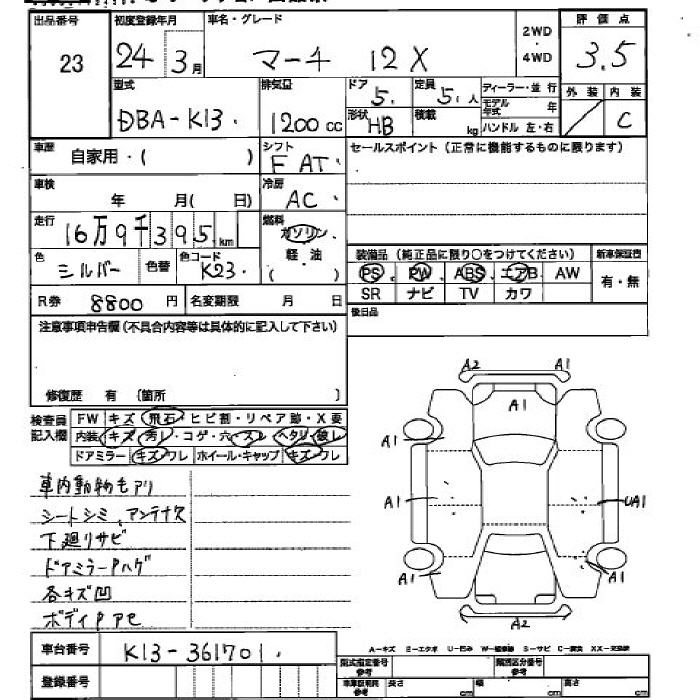 出品番号 初度登録年月 車名・グレード 2WD・4WD 評価点
23 24 3月 マーチ 12X 3.5
型式 排気量 ドア 定員 ディーラー・並行 外装 内装
DBA-K13. 1200cc 5. 5.人 モデル年式 年 C
形状 HB 積載 kg ハンドル 左・右
車歴 自家用・( ) シフト F AT. セールスポイント（正常に機能するものに限ります）
車検 年 月( 日) 冷房 AC.
走行 16万9千395.km 燃料 ガソリン
軽・油
( )
色 シルバー 色替 色コード K23. 装備品（純正品に限り○をつけてください） 新車保証書
PS PW ABS エアB AW 有・無
R券 8800円 名変期限 月 日 SR ナビ TV カワ
後日品
注意事項申告欄（不具合内容等は具体的に記入して下さい）
修復歴 有 〔箇所 〕
検査員記入欄 FW キズ・飛石・ヒビ割・リペア跡・X要
内装 キズ・汚レ・コゲ・穴・スレ・ヘタリ・破レ
ドアミラー キズ・ワレ ホイール・キャップ キズ・ワレ
車内動物モアリ
シートシミ、アンテナ欠
下廻リサビ
ドアミラーPハゲ
各キズ凹
ボディPアセ
A2 A1
A1
A1
A1 UA1
A1 A1
A2
A-キズ E-エクボ U-凹み W-補修跡 S-サビ C-腐食 XX-交換歴
車台番号 K13-361701.
型式指定番号 参考 類別区分番号 参考
登録番号 車車証明用 参考 長さ cm 幅 cm 高さ cm